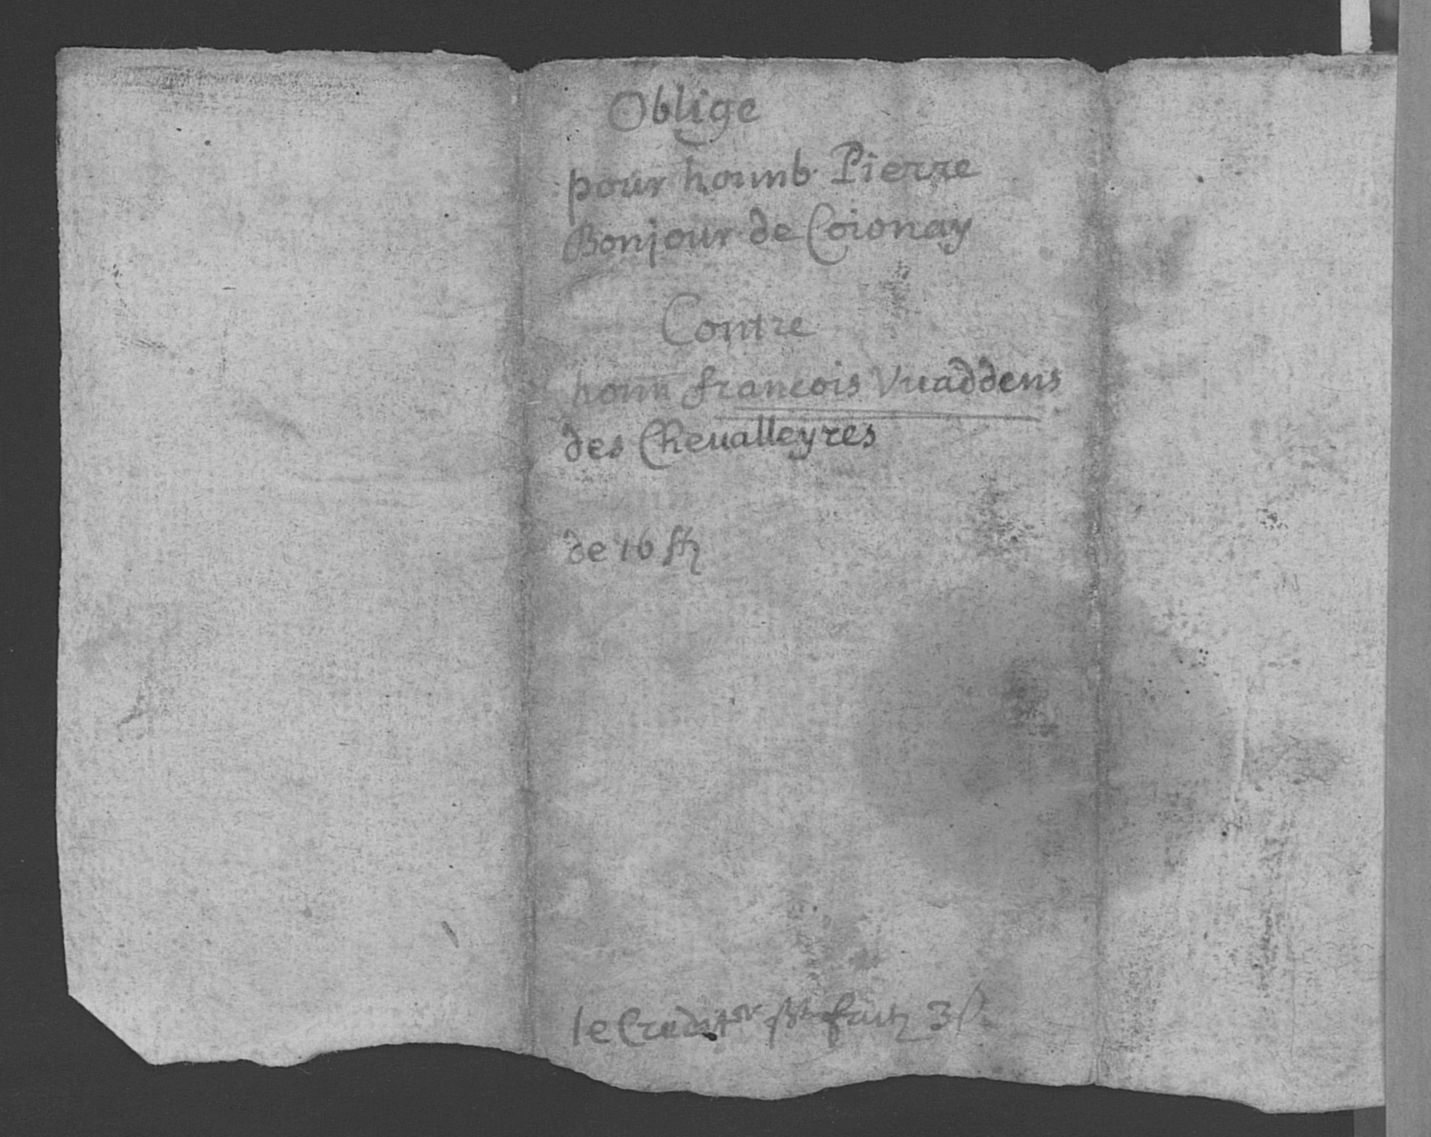 Oblige
pour honnb. Pierre
Bonjour de Coionay
Contre
honn francois Vuaddens
des Cheualleyres
de 16 ffz
le Credit.or 3 s.